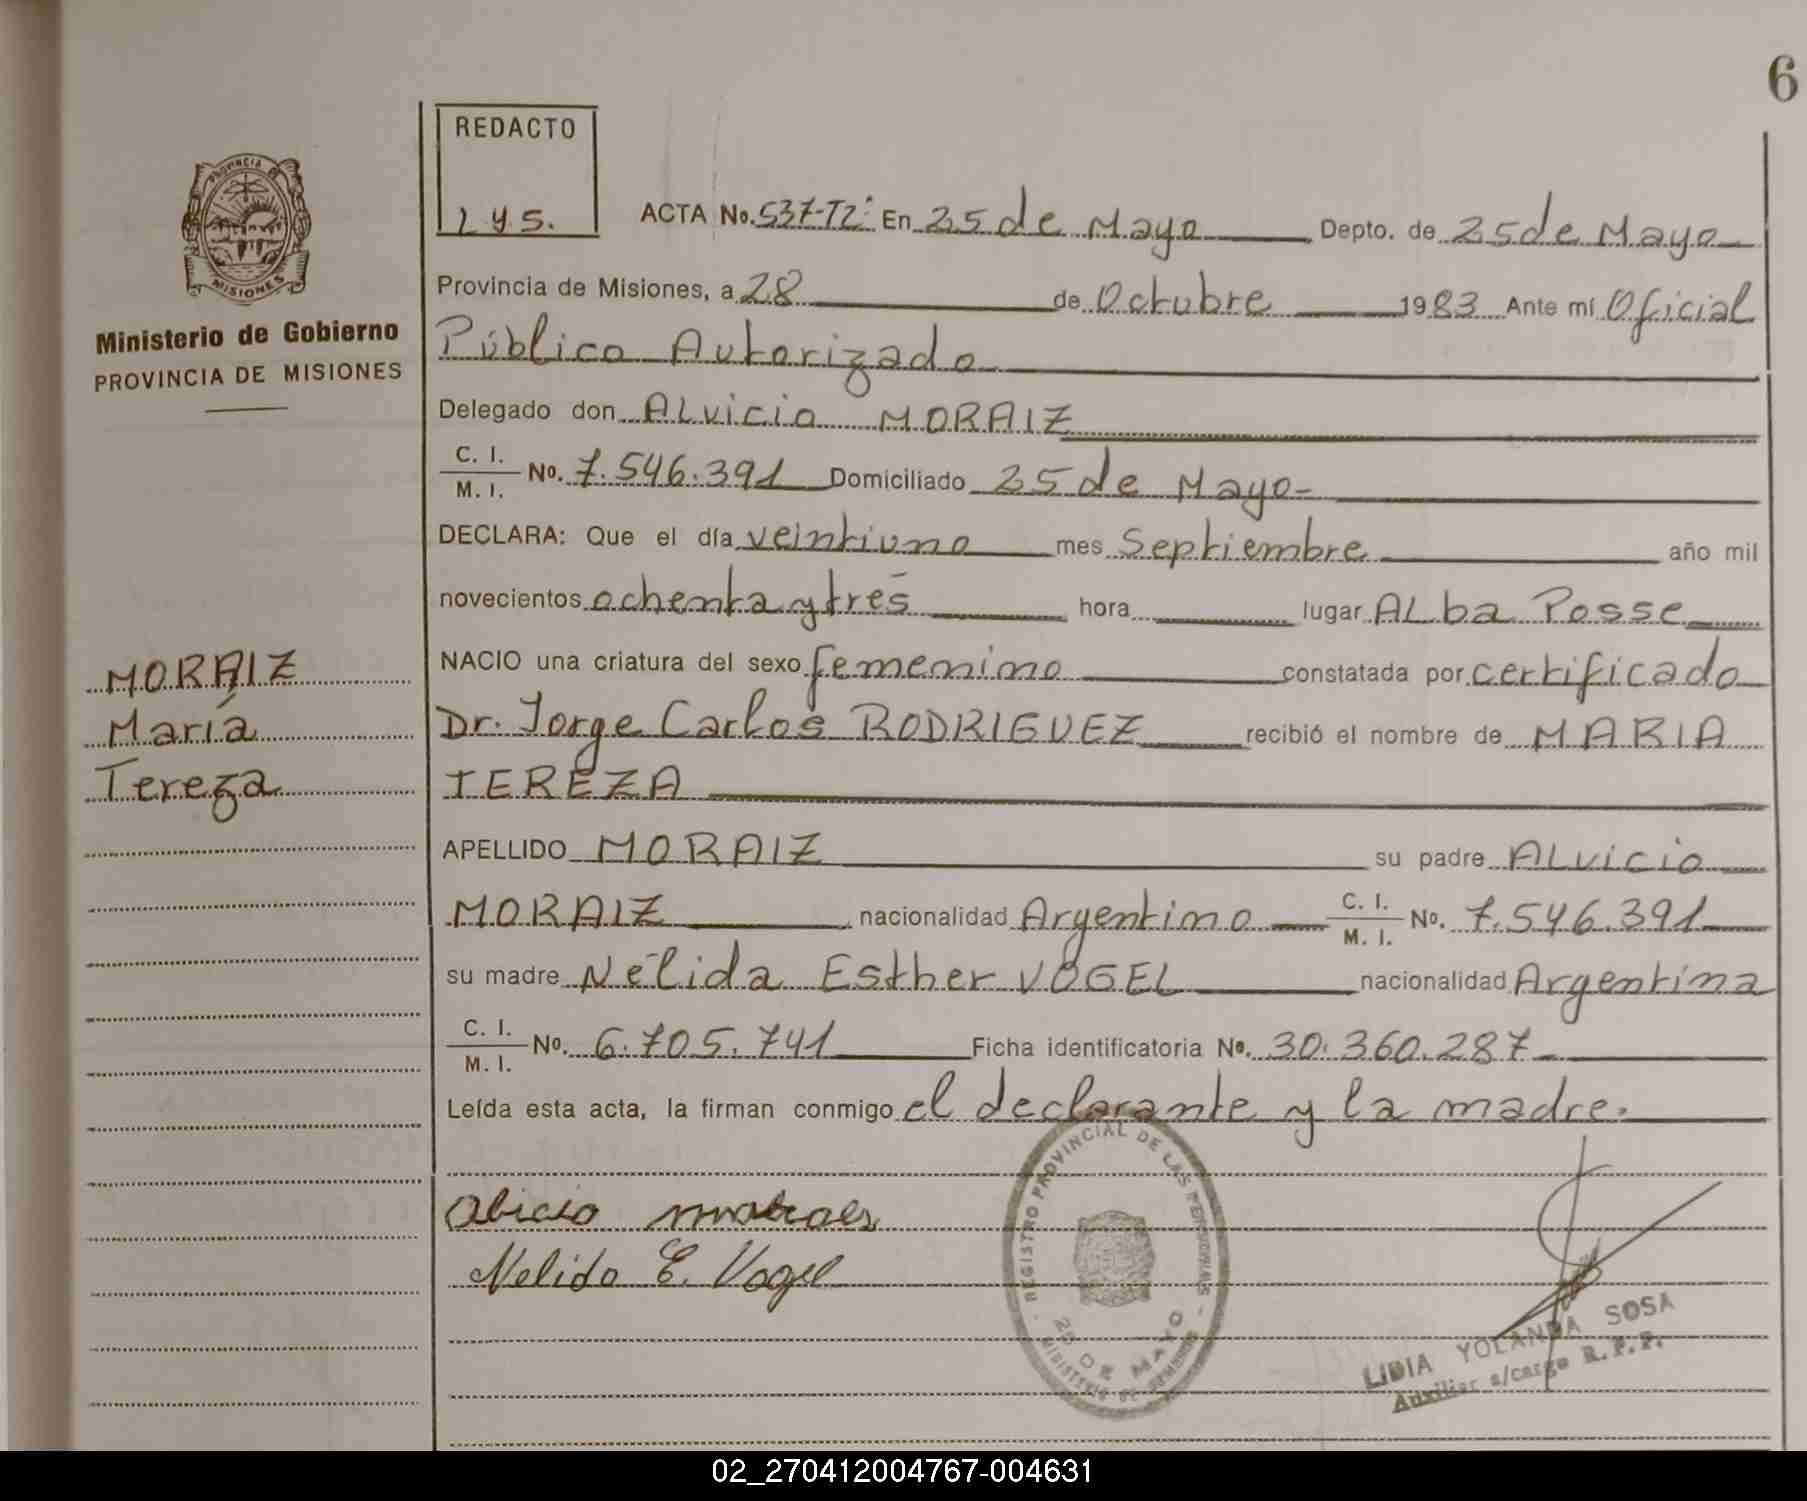 6
REDACTO
L y S.
ACTA No. 537-T2º En 25 de Mayo Depto. de 25 de Mayo
PROVINCIA DE MISIONES
Provincia de Misiones, a 28 de Octubre 1983 Ante mí Oficial
Ministerio de Gobierno
PROVINCIA DE MISIONES
Público Autorizado
Delegado don ALvicio MORAIZ
C. I. / M. I. No. 7.546.391 Domiciliado 25 de Mayo-
DECLARA: Que el día veintiuno mes Septiembre año mil
novecientos ochenta y tres hora lugar ALba Posse
NACIO una criatura del sexo femenino constatada por certificado
MORAIZ
María
Tereza
Dr. Jorge Carlos RODRIGUEZ recibió el nombre de MARIA
TEREZA
APELLIDO MORAIZ su padre ALvicio
MORAIZ nacionalidad Argentino C. I. / M. I. No. 7.546.391
su madre Nélida Esther VOGEL nacionalidad Argentina
C. I. / M. I. No. 6.705.741 Ficha identificatoria No. 30.360.287
Leída esta acta, la firman conmigo el declarante y la madre.
REGISTRO PROVINCIAL DE LAS PERSONAS
25 DE MAYO
Nelida E. Vogel
LIDIA YOLANDA SOSA
Auxiliar a/cargo R.P.P.
02_270412004767-004631